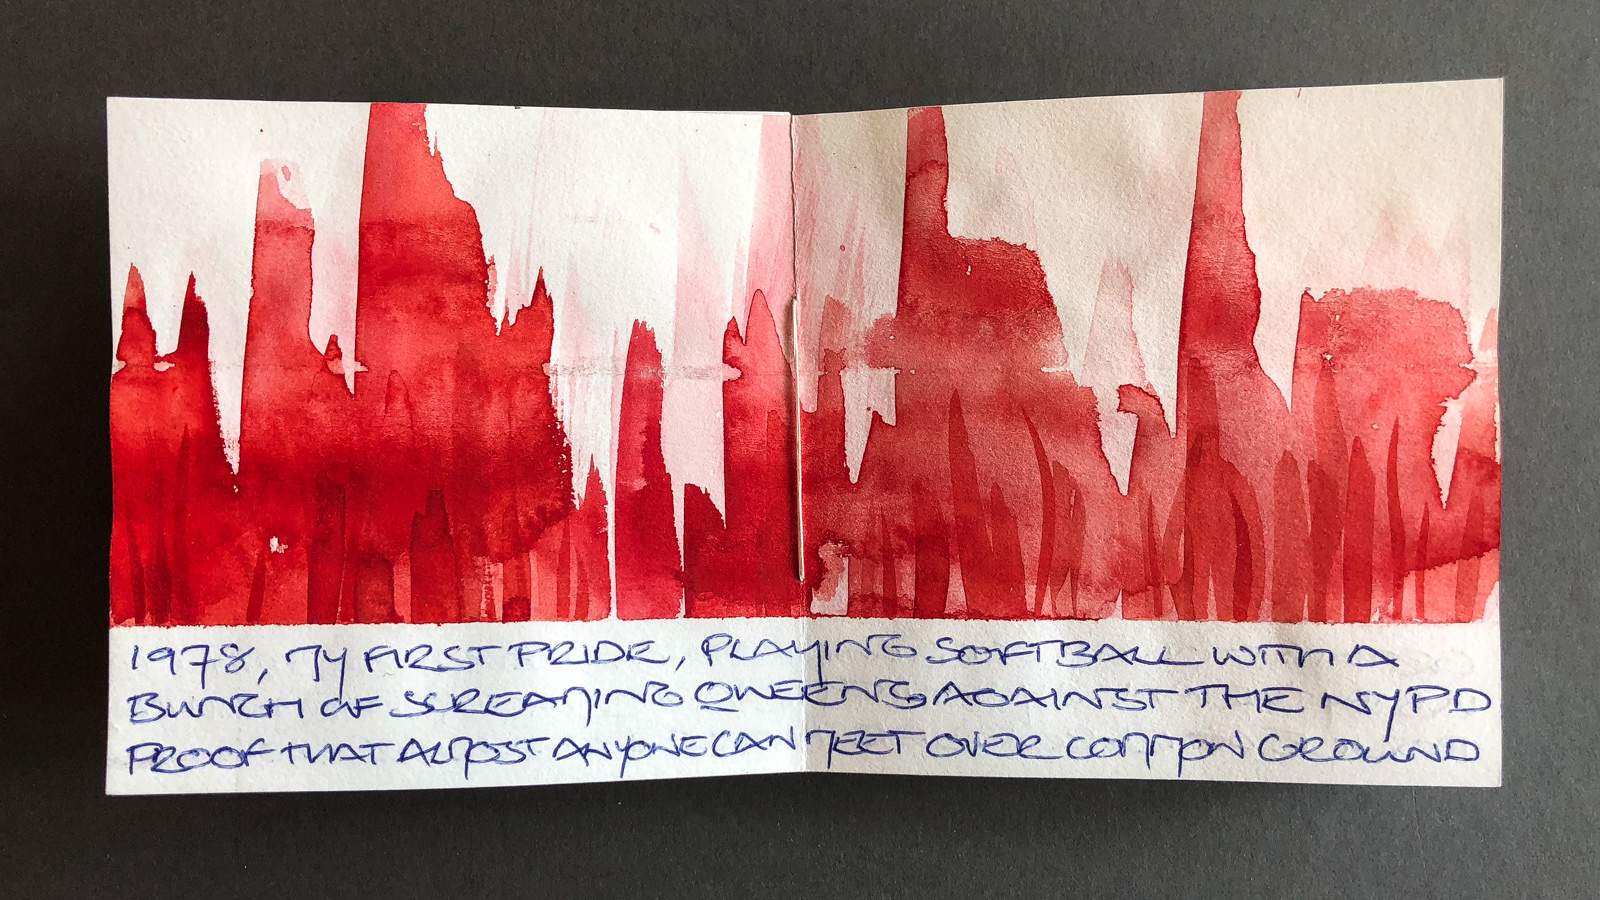 1978, MY FIRST PRIDE, PLAYING SOFTBALL WITH A
BUNCH OF SCREAMING QUEENS AGAINST THE NYPD
PROOF THAT ALMOST ANYONE CAN MEET OVER COMMON GROUND